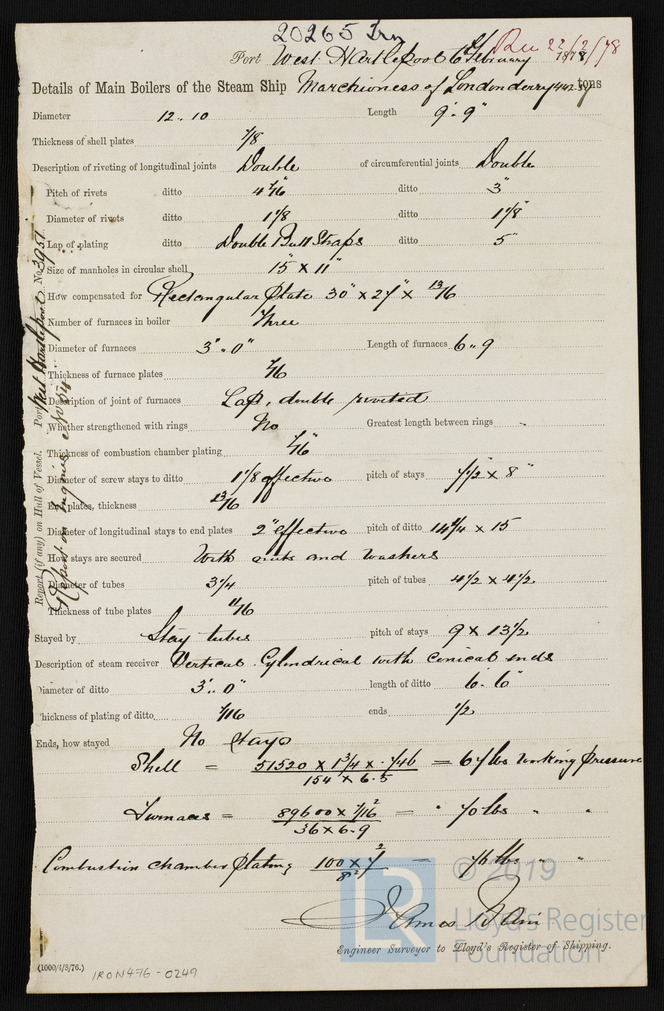 20265 Irn
Port West Hartlepool 6 February 1878, Rec 22/2/78
Details of Main Boilers of the Steam Ship Marchioness of Londonderry tons
Diameter 12.. 10 Length 9'. 9"
Thickness of shell plates 7/8
Description of riveting of longitudinal joints Double of circumferential joints Double
Pitch of rivets ditto 4 7/16" ditto 3"
Diameter of rivets ditto 1 1/8 ditto 1 1/8"
Lap of plating ditto Double Butt Straps ditto 5"
Size of manholes in circular shell 15" x 11"
How compensated for Rectangular plate 30" x 27" x 13/16
Number of furnaces in boiler Three
Diameter of furnaces 3'.. 0" Length of furnaces 6.. 9
Thickness of furnace plates 7/16
Description of joint of furnaces Lap, double riveted
Whether strengthened with rings No Greatest length between rings
Thickness of combustion chamber plating 7/16"
Diameter of screw stays to ditto 1 1/8 effective pitch of stays 7 1/2" x 8"
End plates, thickness 13/16
Diameter of longitudinal stays to end plates 2" effective pitch of ditto 14 3/4 x 15
How stays are secured With nuts and washers
Diameter of tubes 3 1/4 pitch of tubes 4 1/2 x 4 1/2
Thickness of tube plates 11/16
Stayed by Stay tubes pitch of stays 9 x 13 1/2
Description of steam receiver Vertical Cylindrical with conical ends
Diameter of ditto 3'.. 0" length of ditto 6.. 6"
Thickness of plating of ditto 7/16 ends 1/2
Ends, how stayed No Stays
Shell = 51520 x 1 3/4 x .746 / 154 x 6.5 = 67 lbs working pressure
Furnaces = 89600 x 7/16² / 36 x 6.9 = 70 lbs " "
Combustion chamber plating 100 x 7² / 8² = 76 lbs " "
James Bain
Engineer Surveyor to Lloyd's Register of Shipping.
(1000/1/3/76.)
IRON476-0249
Report (if any) on Hull of Vessel. Port West Hartlepool No 3951
Report on Engines
© 2019
LR
Lloyd's Register
Foundation